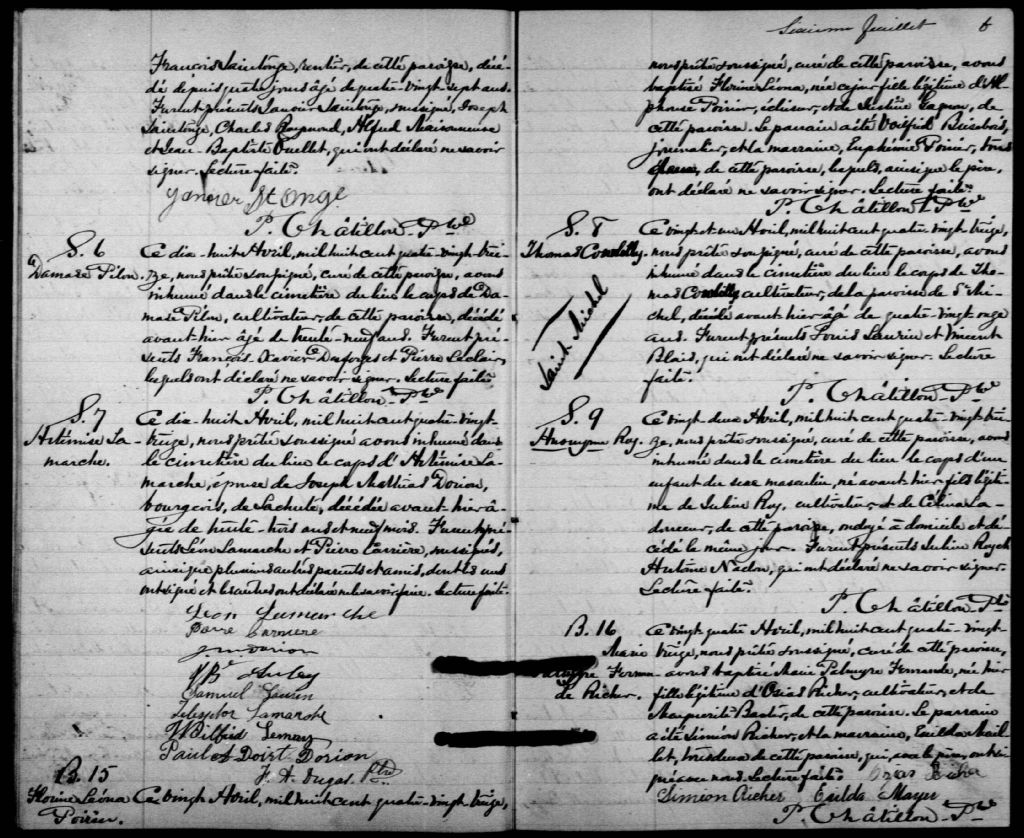 François Saintonge, rentier, de cette paroisse, décé-
dé depuis quatre jours âgé de quatre-vingt-sept ans.
Furent présents Janvier Saintonge, soussigné, Joseph
Saintonge, Charles Raymond, Alfred Maisonneuve
et Jean-Baptiste Ouellet, qui ont déclaré ne savoir
signer. Lecture faite.
Janvier St Onge
P. Châtillon Ptre
S. 6
Damase Pilon.
Ce dix-huit Avril, mil huit cent quatre-vingt-trei-
ze, nous prêtre soussigné, curé de cette paroisse, avons
inhumé dans le cimetière du lieu le corps de Da-
mase Pilon, cultivateur, de cette paroisse, décédé
avant-hier âgé de trente-neuf ans. Furent pré-
sents François Xavier Desforges et Pierre Leclair,
lesquels ont déclaré ne savoir signer. Lecture faite
P. Châtillon Ptre
S. 7
Artémise La-
marche.
Ce dix-huit Avril, mil huit cent quatre-vingt-
treize, nous prêtre soussigné avons inhumé dans
le cimetière du lieu le corps d'Artémise La-
marche, épouse de Joseph Mathias Dorion,
bourgeois, de Lachute, décédée avant-hier â-
gée de trente-trois ans et neuf mois. Furent pré-
sents Léon Lamarche et Pierre Carrière, soussignés,
ainsi que plusieurs autres parents et amis, dont les uns
ont signé et les autres ont déclaré ne le savoir faire. Lecture faite.
Leon Lamarche
Pierre Carriere
J M Dorion
Samuel
Lamarche
Wilfrid Lemay
Paul A Doirt Dorion
F. A. Dugas Ptre
B. 15
Florine Léona
Poirier.
Ce vingt Avril, mil huit cent quatre-vingt-treize,
Sixième feuillet 6
nous prêtre soussigné, curé de cette paroisse, avons
baptisé Florine Léona, née ce jour fille légitime d'Al-
phonse Poirier, éclusier, et de Justine Gagnon, de
cette paroisse. Le parrain a été Wilfrid Brisebois,
journalier, et la marraine, Euphémie Poirier, tous
deux, de cette paroisse, lesquels, ainsi que le père,
ont déclaré ne savoir signer. Lecture faite.
P. Châtillon Ptre
S. 8
Thomas Costelly.
Saint Michel
Ce vingt et un Avril, mil huit cent quatre-vingt-treize,
nous prêtre soussigné, curé de cette paroisse, avons
inhumé dans le cimetière du lieu le corps de Tho-
mas Costelly cultivateur, de la paroisse de St Mi-
chel, décédé avant-hier âgé de quatre-vingt-onze
ans. Furent présents Louis Laurin et Vincent
Blais, qui ont déclaré ne savoir signer. Lecture
faite.
P. Châtillon Ptre
S. 9
Anonyme Roy.
Ce vingt-deux Avril, mil huit cent quatre-vingt-trei-
ze, nous prêtre soussigné, curé de cette paroisse, avons
inhumé dans le cimetière du lieu le corps d'un
enfant du sexe masculin, né avant-hier fils légiti-
me de Julien Roy, cultivateur, et de Célina La-
douceur, de cette paroisse, ondoyé à domicile et dé-
cédé le même jour. Furent présents Julien Roy et
Antoine Nadon, qui ont déclaré ne savoir signer.
Lecture faite.
P. Châtillon Ptre
B. 16
Marie
Palmyre Fernan-
de Richer.
Ce vingt-quatre Avril, mil huit cent quatre-vingt-
treize, nous prêtre soussigné, curé de cette paroisse,
avons baptisé Marie Palmyre Fernande, née hier
fille légitime d'Osias Richer, cultivateur, et de
Marguerite de cette paroisse. Le parrain
a été Siméon Richer, et la marraine, Exilda Mail-
let, tous deux de cette paroisse, qui, avec le père, ont si-
gné avec nous. Lecture faite. Ozias Richer
Simion Richer Exilda Mayer
P. Châtillon Ptre